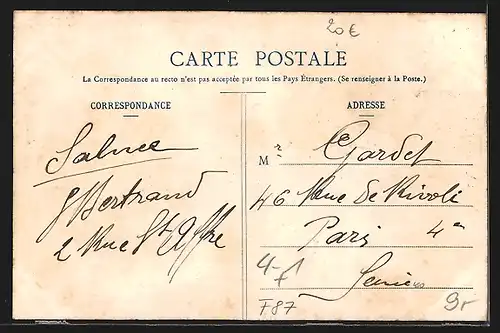 20€
CARTE POSTALE
La Correspondance au recto n'est pas acceptée par tous les Pays Étrangers. (Se renseigner à la Poste.)
CORRESPONDANCE
Bertrand
2 Rue St Affre
ADRESSE
Mr Gardet
46 Rue de Rivoli
Paris 4e
F87
9r